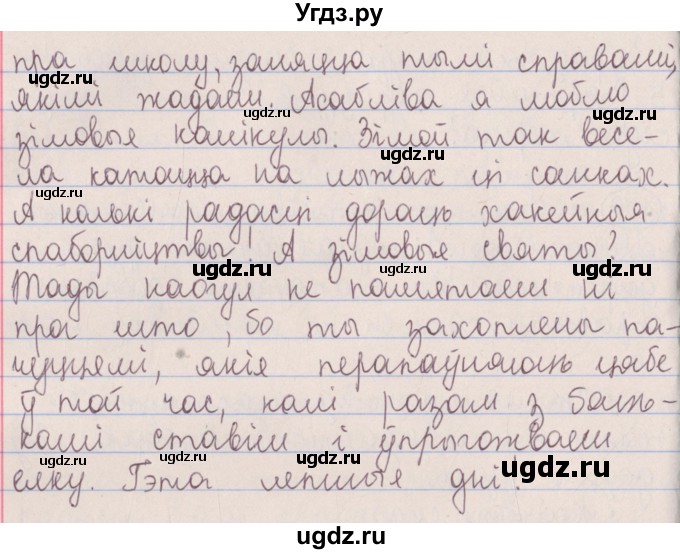 Угдз.ру
пра школу, заняцца тымі справамі,
якімі жадаеш. Асабліва я люблю
зімовыя канікулы. Зімой так весе-
ла катацца на лыжах ці санках.
А колькі радасці дораць хакейныя
спаборніцтвы! А зімовыя святы?
Тады наогул не памятаеш ні
пра што, бо ты захоплены па-
чуццямі, якія перапаўняюць цябе
ў той час, калі разам з баць-
камі ставіш і ўпрыгожваеш
елку. Гэта лепшыя дні!
gdz.ru
gdz.ru
uwgdz.ru
uwgdz.ru
gdz.ru
uwgdz.ru
uwgdz.ru
gdz.ru
uwgdz.ru
uwgdz.ru
gdz.ru
uwgdz.ru
uwgdz.ru
uwgdz.ru